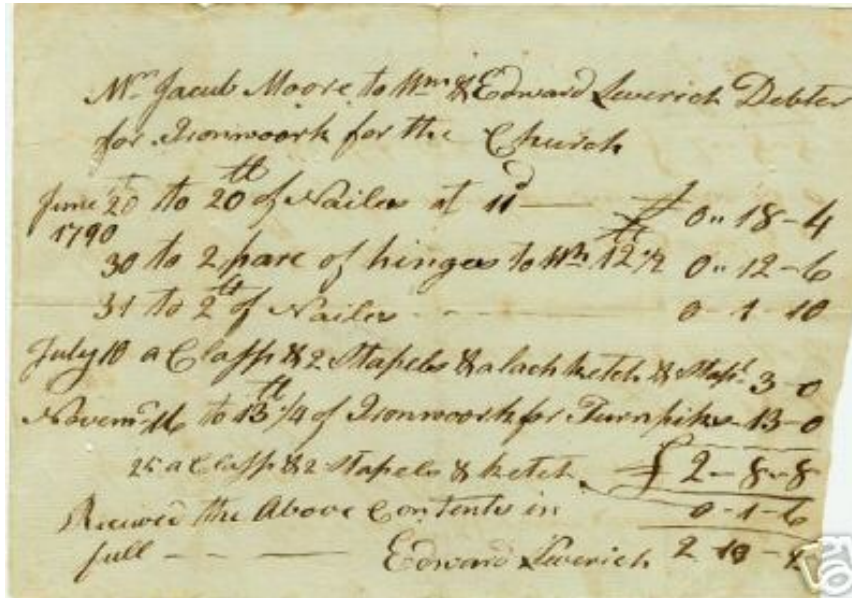 Mr Jacob Moore to Wm & Edward Leverich Debter
for Ironwoork for the Church
June 20 to 20 tt of Nailes at 11d — £ 0 „ 18 - 4
1790
30 to 2 pare of hinges to Wh tt 12 1/2 0 „ 12 - 6
31 to 2 tt of Nailes - - - 0 - 1 - 10
July 10 a Clasp & 2 Stapels & a lach ketch & Stapl 3 - 0
Novemr 16 to 13 tt 1/4 of Ironwoork for Turnpikes - 13 - 0
25 a Clasp & 2 Stapels & ketch £ 2 - 8 - 8
Received the Above Contents in 0 - 1 - 6
full — — — Edward Leverich 2 10 - 2